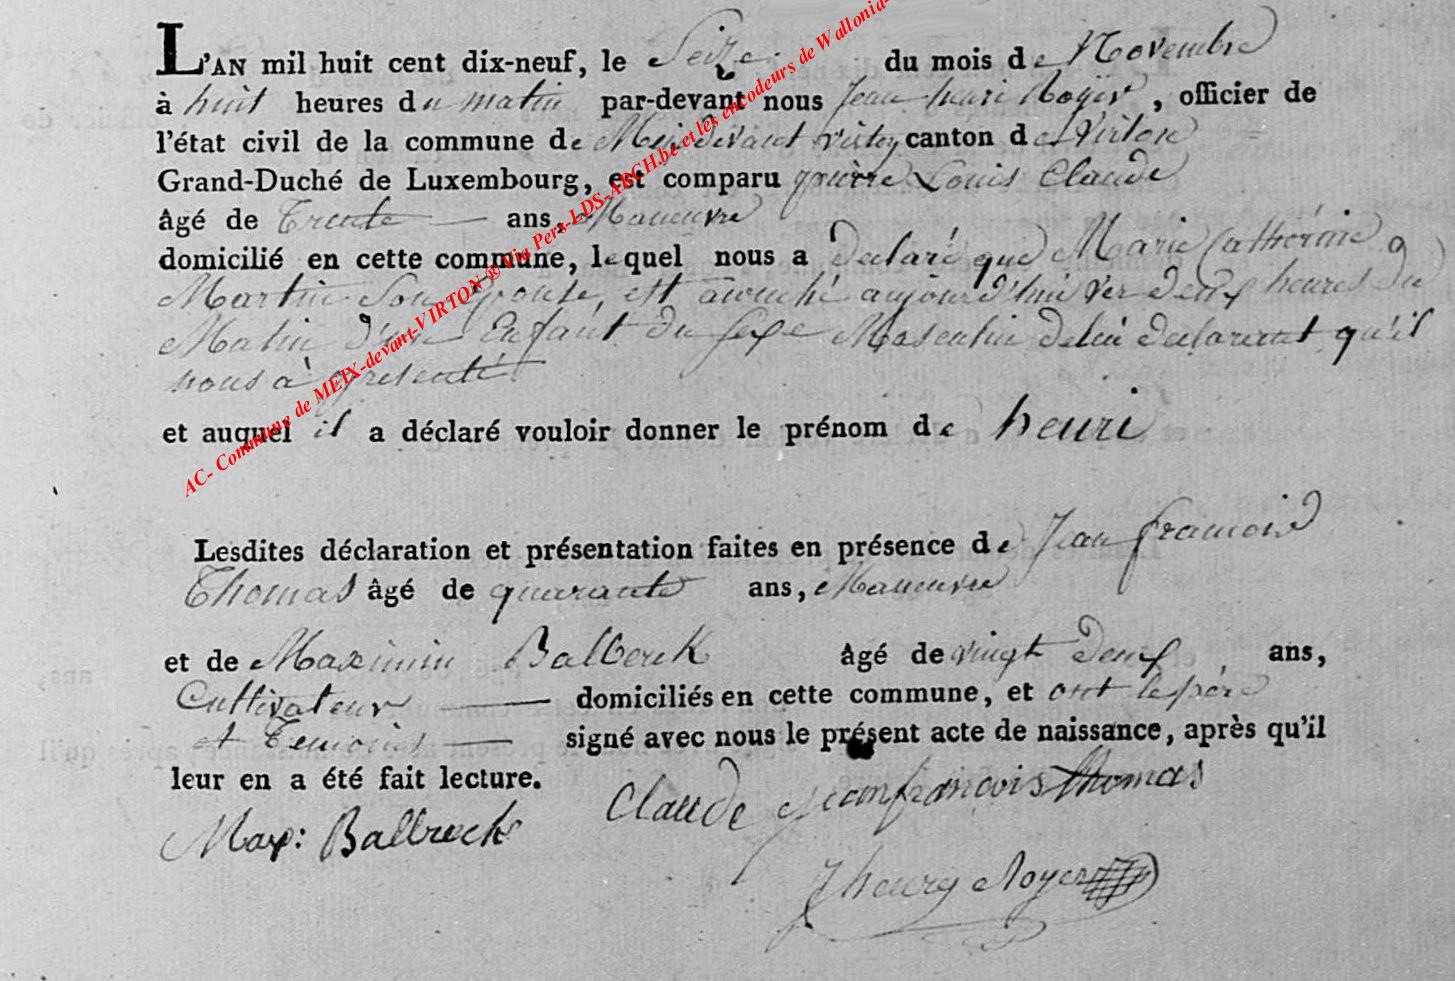 L'AN mil huit cent dix-neuf, le Seize du mois de Novembre
à huit heures du matin par-devant nous Jean henri Royer, officier de
l'état civil de la commune de Meix devant virton canton de Virton
Grand-Duché de Luxembourg, est comparu pierre Louis Claude
âgé de Trente ans, Maneuvre
domicilié en cette commune, lequel nous a declaré que Marie Catherine
Martin Son Epouse, est acouché aujourd'hui ver deux heures du
Matin d'un Enfant du sexe Masculin de lui declarant qu'il
nous à presenté
et auquel il a déclaré vouloir donner le prénom de henri
Lesdites déclaration et présentation faites en présence de Jean francois
Thomas âgé de quarante ans, Maneuvre
et de Maximin Balbeck âgé de vingt deux ans,
Cultivateur domiciliés en cette commune, et ont le père
et Temoins signé avec nous le présent acte de naissance, après qu'il
leur en a été fait lecture.
Claude jeanfrançois thomas
Max: Balbreck
J henry Royer
AC- Commune de MEIX-devant-VIRTON ® Via Pers-LDS-ARCH.be et les encodeurs de Wallonia-